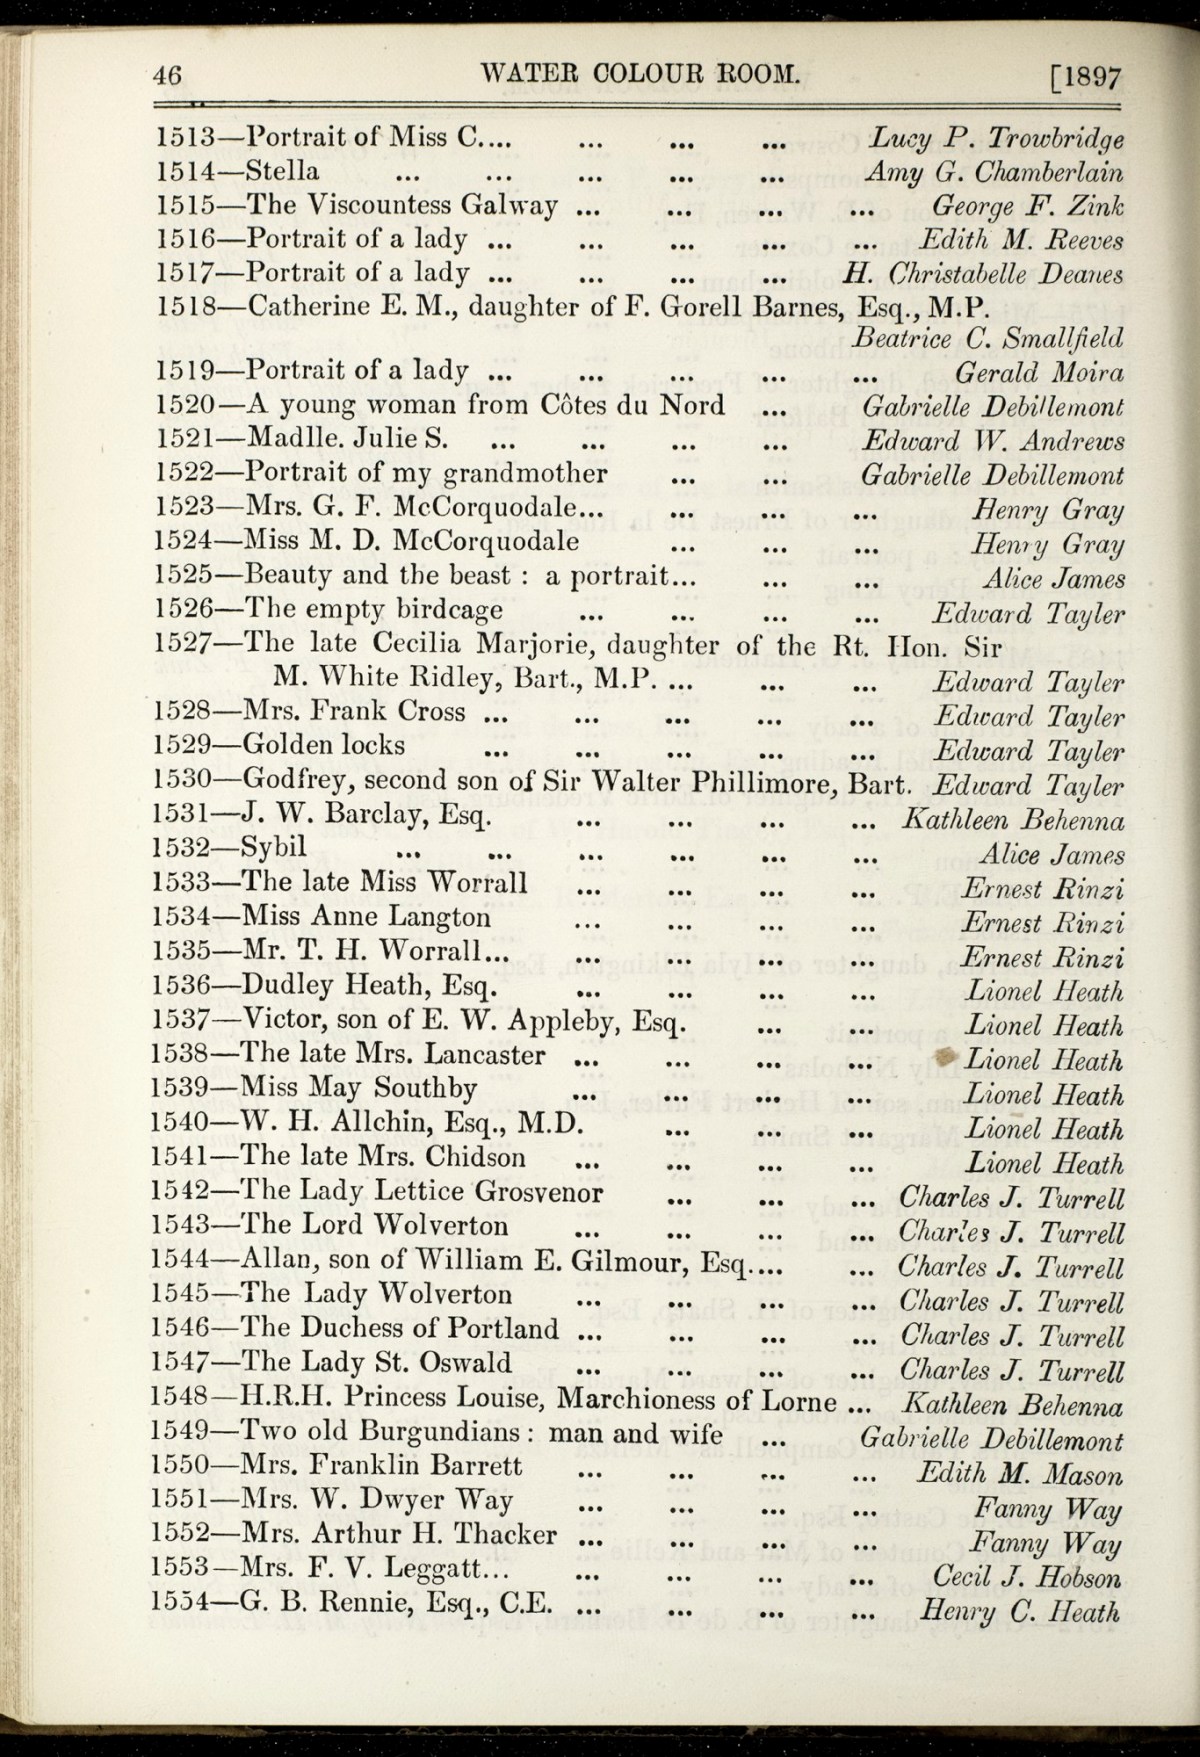 46 WATER COLOUR ROOM. [1897
1513—Portrait of Miss C.... ... ... ... Lucy P. Trowbridge
1514—Stella ... ... ... ... ... Amy G. Chamberlain
1515—The Viscountess Galway ... ... ... ... George F. Zink
1516—Portrait of a lady ... ... ... ... ... Edith M. Reeves
1517—Portrait of a lady ... ... ... ... H. Christabelle Deanes
1518—Catherine E. M., daughter of F. Gorell Barnes, Esq., M.P.
Beatrice C. Smallfield
1519—Portrait of a lady ... ... ... ... ... Gerald Moira
1520—A young woman from Côtes du Nord ... Gabrielle Debillemont
1521—Madlle. Julie S. ... ... ... ... Edward W. Andrews
1522—Portrait of my grandmother ... ... Gabrielle Debillemont
1523—Mrs. G. F. McCorquodale... ... ... ... Henry Gray
1524—Miss M. D. McCorquodale ... ... ... Henry Gray
1525—Beauty and the beast : a portrait... ... ... Alice James
1526—The empty birdcage ... ... ... ... Edward Tayler
1527—The late Cecilia Marjorie, daughter of the Rt. Hon. Sir
M. White Ridley, Bart., M.P. ... ... ... Edward Tayler
1528—Mrs. Frank Cross ... ... ... ... ... Edward Tayler
1529—Golden locks ... ... ... ... ... Edward Tayler
1530—Godfrey, second son of Sir Walter Phillimore, Bart. Edward Tayler
1531—J. W. Barclay, Esq. ... ... ... ... Kathleen Behenna
1532—Sybil ... ... ... ... ... ... Alice James
1533—The late Miss Worrall ... ... ... ... Ernest Rinzi
1534—Miss Anne Langton ... ... ... ... Ernest Rinzi
1535—Mr. T. H. Worrall... ... ... ... ... Ernest Rinzi
1536—Dudley Heath, Esq. ... ... ... ... Lionel Heath
1537—Victor, son of E. W. Appleby, Esq. ... ... Lionel Heath
1538—The late Mrs. Lancaster ... ... ... ... Lionel Heath
1539—Miss May Southby ... ... ... ... Lionel Heath
1540—W. H. Allchin, Esq., M.D. ... ... ... Lionel Heath
1541—The late Mrs. Chidson ... ... ... ... Lionel Heath
1542—The Lady Lettice Grosvenor ... ... ... Charles J. Turrell
1543—The Lord Wolverton ... ... ... ... Charles J. Turrell
1544—Allan, son of William E. Gilmour, Esq.... ... Charles J. Turrell
1545—The Lady Wolverton ... ... ... ... Charles J. Turrell
1546—The Duchess of Portland ... ... ... ... Charles J. Turrell
1547—The Lady St. Oswald ... ... ... ... Charles J. Turrell
1548—H.R.H. Princess Louise, Marchioness of Lorne ... Kathleen Behenna
1549—Two old Burgundians : man and wife ... Gabrielle Debillemont
1550—Mrs. Franklin Barrett ... ... ... ... Edith M. Mason
1551—Mrs. W. Dwyer Way ... ... ... ... Fanny Way
1552—Mrs. Arthur H. Thacker ... ... ... ... Fanny Way
1553—Mrs. F. V. Leggatt... ... ... ... ... Cecil J. Hobson
1554—G. B. Rennie, Esq., C.E. ... ... ... ... Henry C. Heath